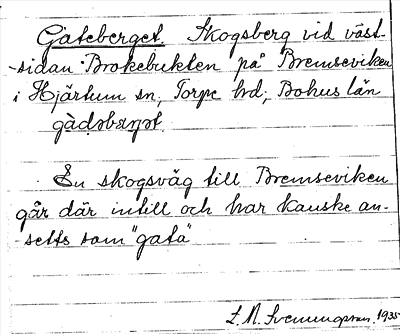 Gateberget. Skogsberg vid väst-
-sidan Brokebukten på Bremseviken
i Hjärtum sn, Torpe hd, Bohus län
En skogsväg till Bremseviken
går där intill och har kanske an-
setts som "gata"
1935